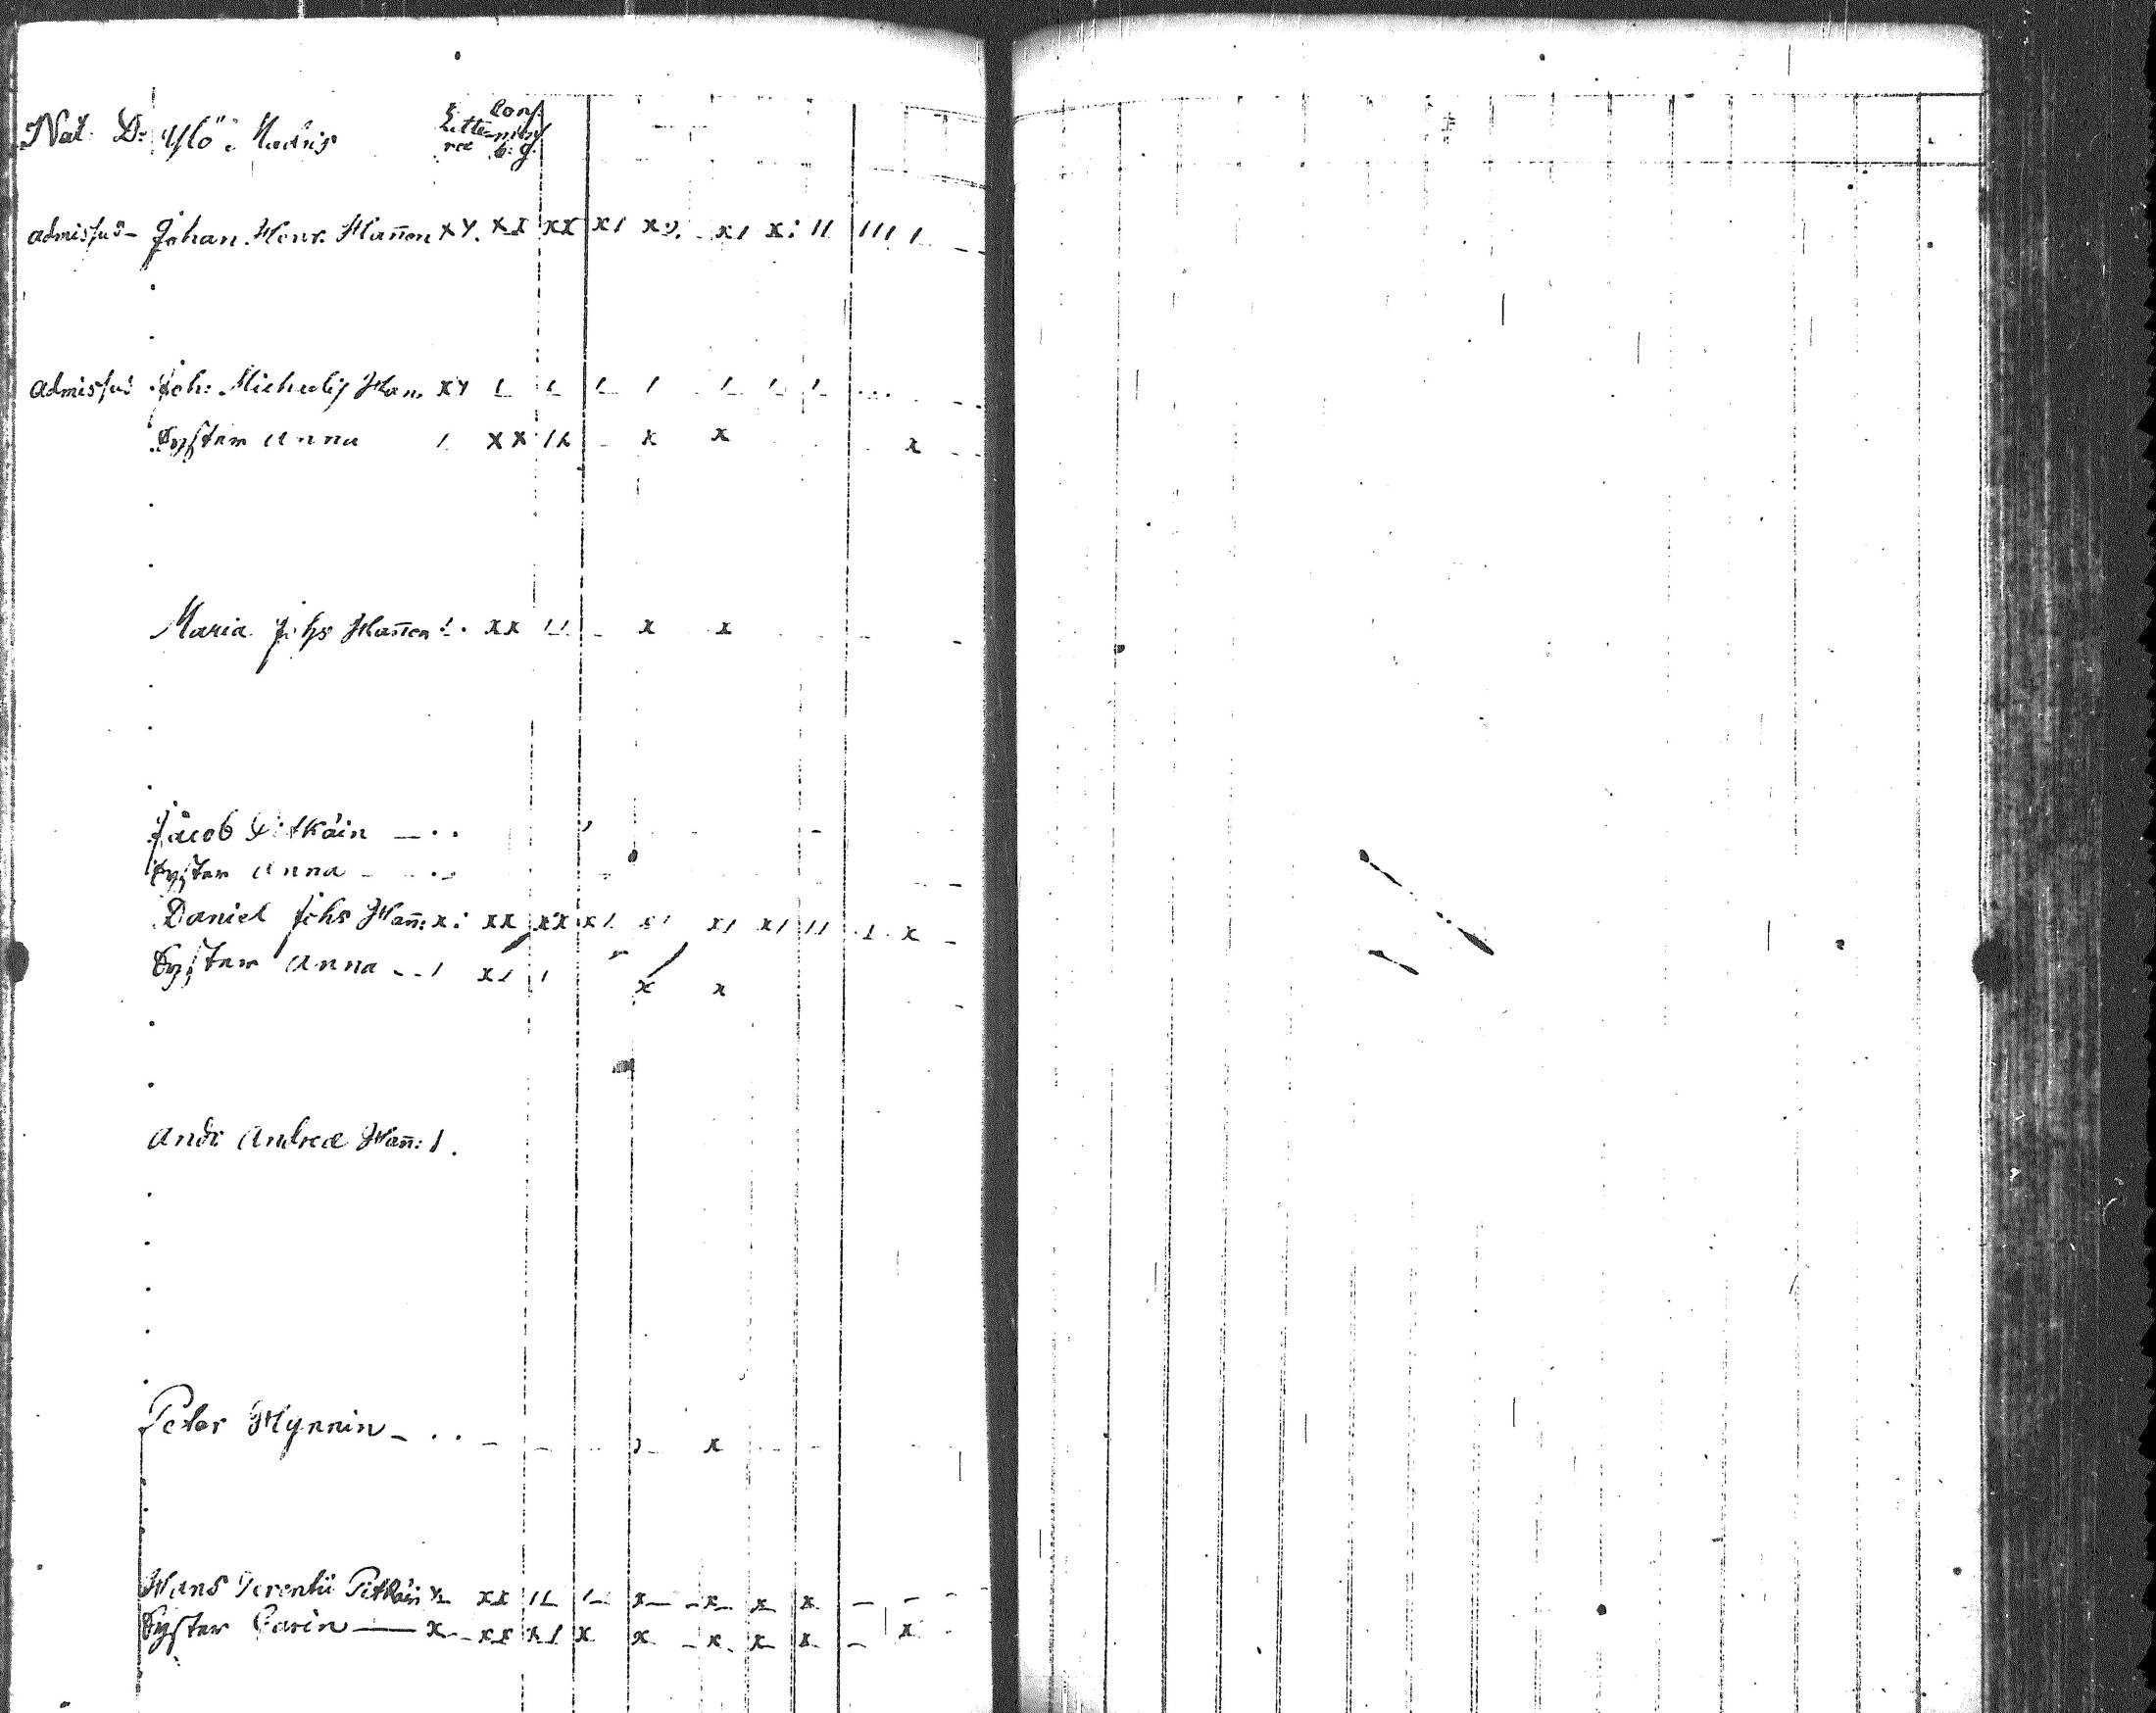 Nat. D:
Litte- Conf.
ræ b. g.
admissus - Johan Henr. Hañen xx. xx xx x1 x x1 x: 11 111 1
admissus Joh: Michaelis Han. xx 1 1 1 1 1 1 1
Syster Anna 1 xx 1x x x x
Maria Johs Hañen 1. xx 11 x x
Jacob Pitkäin
Syster Anna
Daniel Johs Hañ: x: xx xx x1 x1 x1 x1 11 1 x
Syster Anna - - 1 x1 1 x x
Andr Andreæ Hañ: 1.
Peter Hynnin - x
Hans Pitkäin x xx 11 1 x x x x
Syster Carin x xx x1 x x x x x x